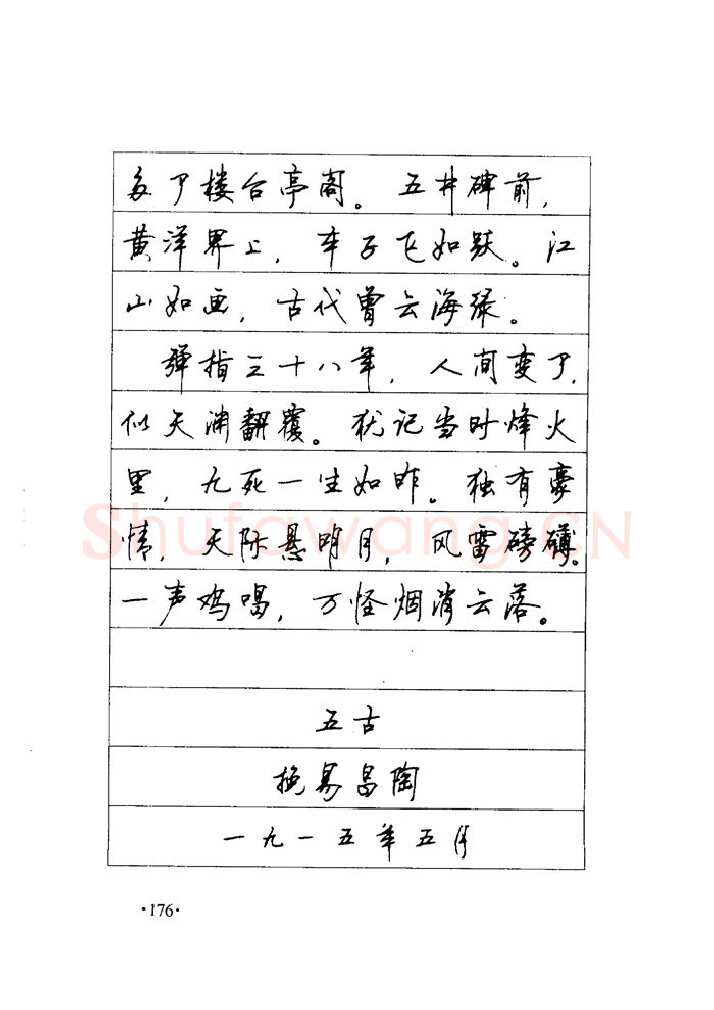 多了楼台亭阁。五井碑前，
黄洋界上，车子飞如跃。江
山如画，古代曾云海绿。
弹指三十八年，人间变了，
似天渊翻覆。犹记当时烽火
里，九死一生如昨。独有豪
情，天际悬明月，风雷磅礴。
一声鸡唱，万怪烟消云落。
五古
挽易昌陶
一九一五年五月
·176·
Shufawang.CN